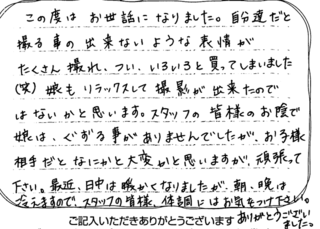 この度は お世話に なりました。自分達だと
撮る事の出来ないような表情が
たくさん撮れ、つい、いろいろと買ってしまいました
(笑) 娘もリラックスして撮影が出来たので
はないかと思います。スタッフの皆様のお陰で
娘は、ぐずる事がありませんでしたが、お子様
相手だとなにかと大変かと思いますが、頑張って
下さい。最近、日中は暖かくなりましたが、朝、晩は
冷えますので、スタッフの皆様、体調にはお気をつけ下さい。
ご記入いただきありがとうございます
ありがとうござい
ました。